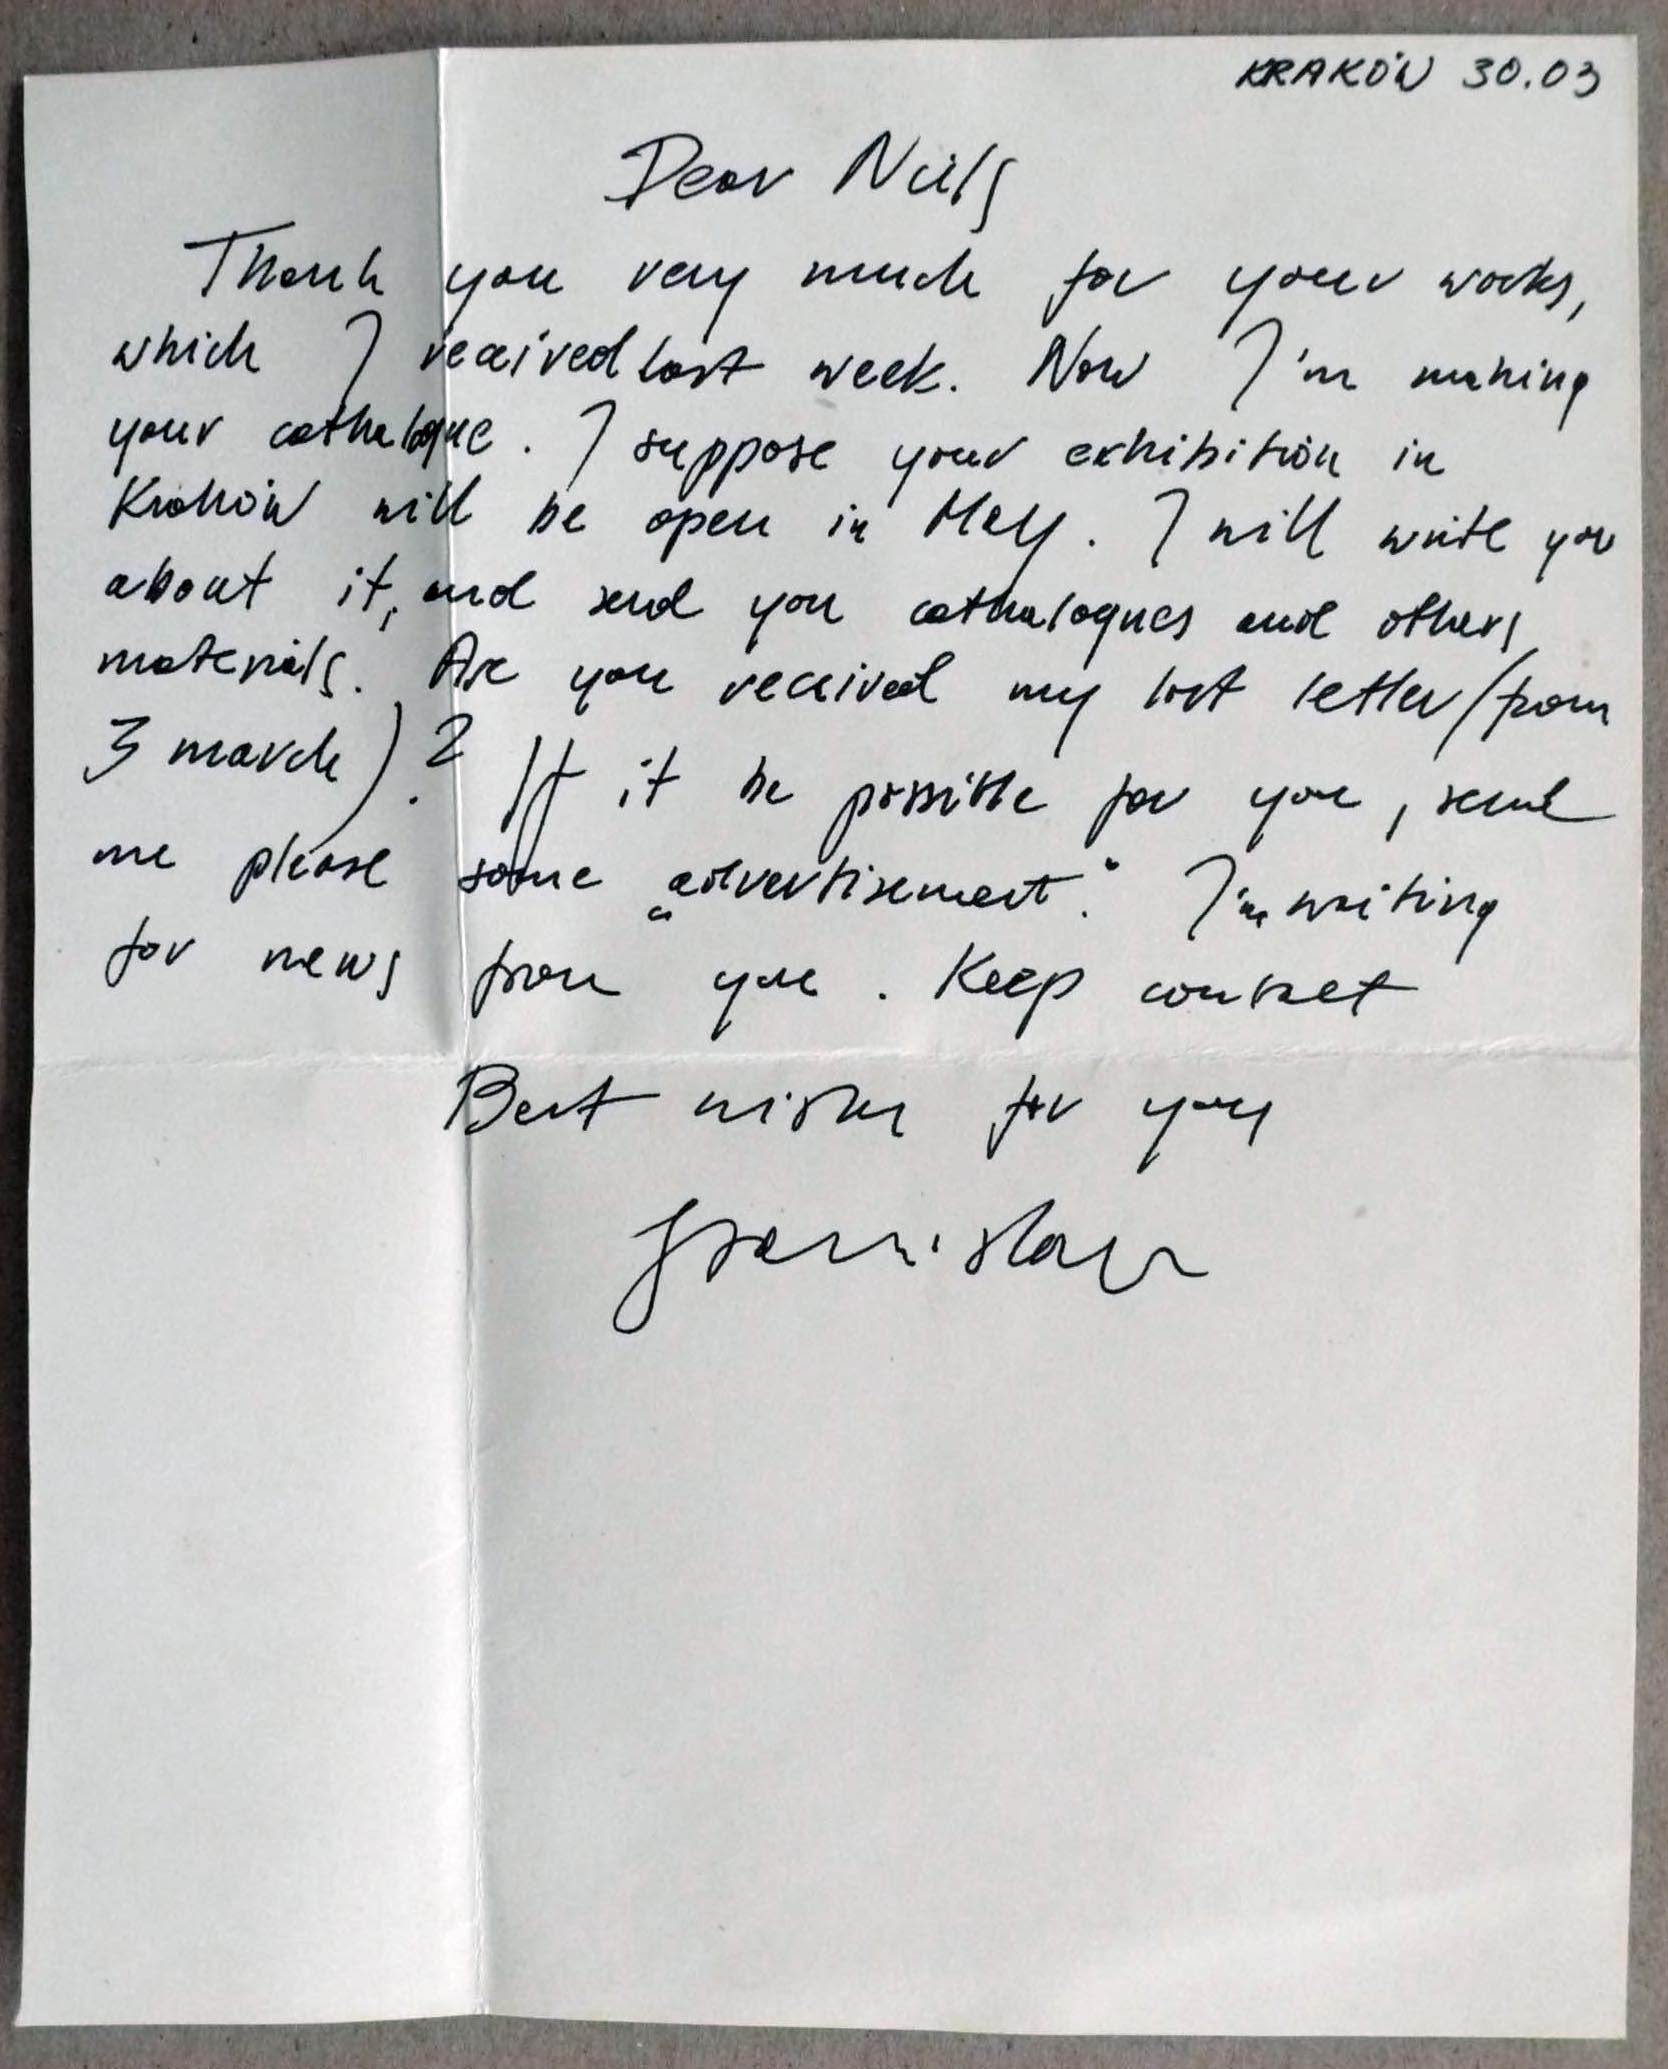 KRAKÓW 30.03
Dear Niels
Thank you very much for your works,
which I received last week. Now I'm making
your cathalogue. I suppose your exhibition in
Kraków will be open in May. I will write you
about it, and send you cathalogues and others
materials. Are you received my last letter (from
3 march)? If it be possible for you, send
me please some „advertisement". I'm waiting
for news from you. Keep contact
Best wishes for you
Stanislaw